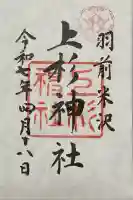 羽前米沢
上杉神社
令和七年四月十八日